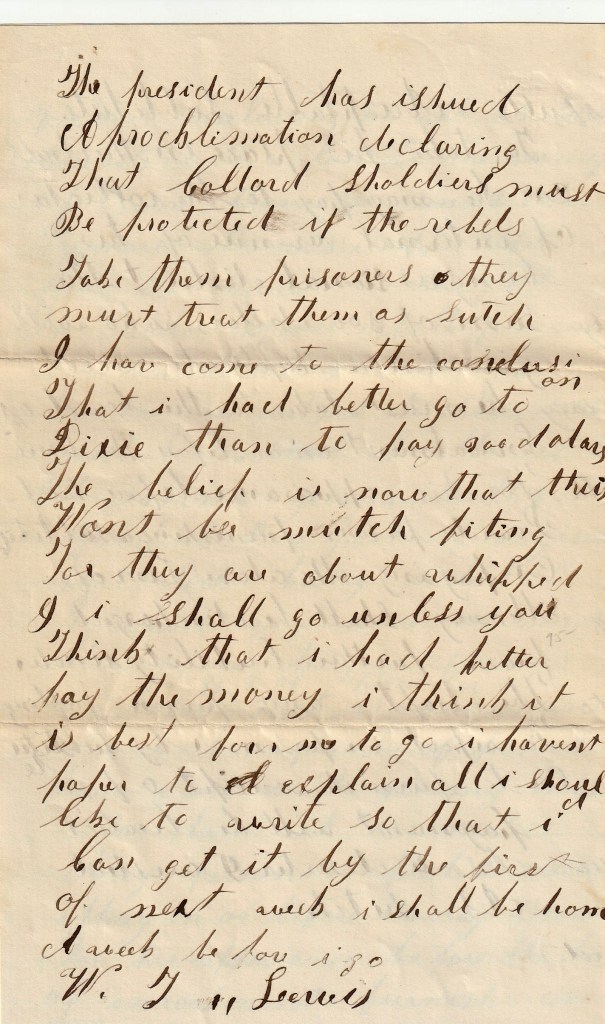 The president has ishued
A prochlimation declaring
That Collord sholdiers must
Be protected if the rebels
Take them prisoners they
must treat them as sutch
I hav come to the conclusi
on
That i had better go to
Dixie than to pay 300 dolars
The belief is now that this
Wont be mutch fiting
For they are about whipped
I i shall go unless you
Think that i had better
pay the money i think it
is best for me to go i havent
paper to explain all i shoul
d
like to write so that i
Can get it by the first
of next week i shall be hom
A week be fore i go
W. J ,, Lewis